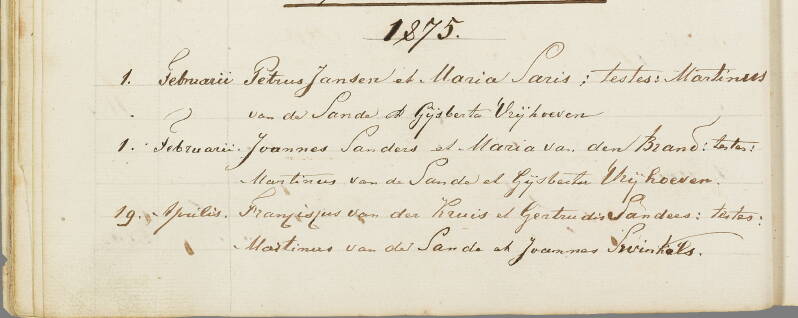 1875.
1. Februarii Petrus Jansen et Maria Saris; testes: Martinus
van de Sande et Gijsberta Vrijhoeven
1. Februarii. Joannes Sanders et Maria van den Brand: testes:
Martinus van de Sande et Gijsberta Vrijhoeven.
19. Aprilis. Franziscus van der Kruis et Gertrudis Sanders: testes:
Martinus van de Sande et Joannes Swinkels.